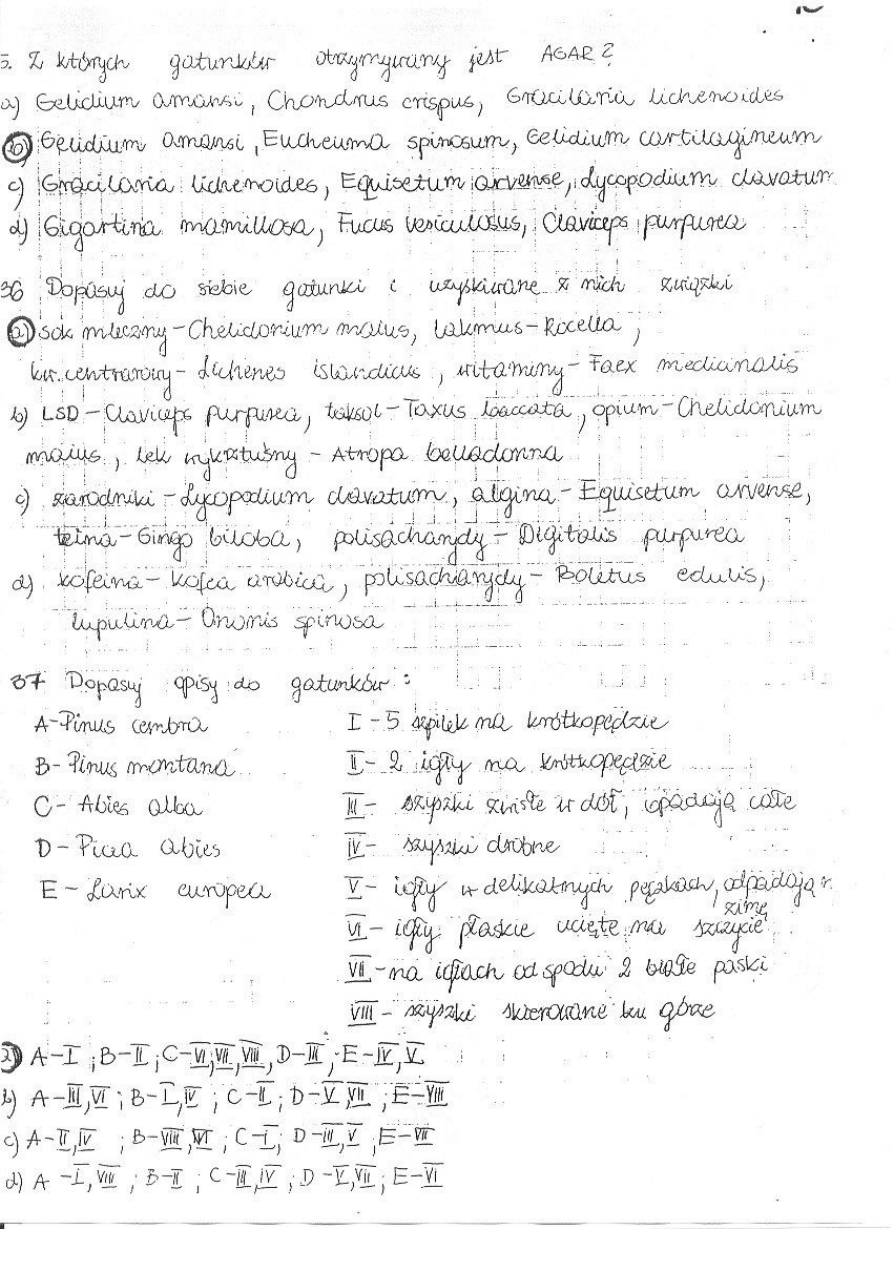 5. Z których gatunków otrzymywany jest AGAR?
a) Gelidium amansi, Chondrus crispus, Gracilaria lichenoides
b) Gelidium amansi, Eucheuma spinosum, Gelidium cartilagineum
c) Gracilaria lichenoides, Equisetum arvense, Lycopodium clavatum
d) Gigartina mamillosa, Fucus vesiculosus, Claviceps purpurea
36 Dopasuj do siebie gatunki i uzyskiwane z nich związki
a) sok mleczny - Chelidonium maius, lakmus - Rocella,
kw. centrarowy - Lichenes islandicus, witaminy - Faex medicinalis
b) LSD - Claviceps purpurea, taksol - Taxus baccata, opium - Chelidonium
maius, lek wykrztuśny - Atropa belladonna
c) zarodniki - Lycopodium clavatum, algina - Equisetum arvense,
teina - Gingo biloba, polisacharydy - Digitalis purpurea
d) kofeina - Kofea arabica, polisacharydy - Boletus edulis,
lupulina - Ononis spinosa
37 Dopasuj opisy do gatunków:
A - Pinus cembra I - 5 szpilek na krótkopędzie
B - Pinus montana II - 2 igły na krótkopędzie
C - Abies alba III - szyszki zwisłe w dół, opadają całe
D - Picea abies IV - szyszki drobne
E - Larix europea V - igły w delikatnych pęczkach, odpadają n.
zimę
VI - igły płaskie ucięte na szczycie
VII - na igłach od spodu 2 białe paski
VIII - szyszki skierowane ku górze
a) A-I; B-II; C-VI, VII, VIII, D-III; E-IV, V
b) A-III, VI; B-I, IV; C-II; D-V, VII; E-VIII
c) A-II, IV; B-VIII, VI; C-I; D-III, V; E-VII
d) A-I, VIII; B-II; C-III, IV; D-V, VII; E-VI